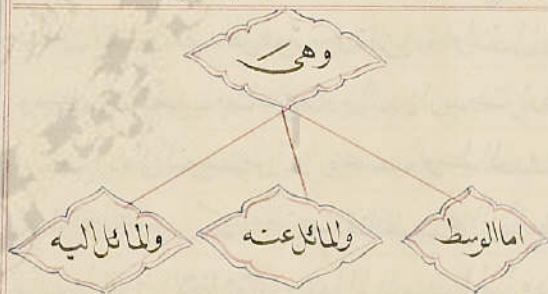 وهى
اما الوسط
والمائل عنه
والمائل اليه